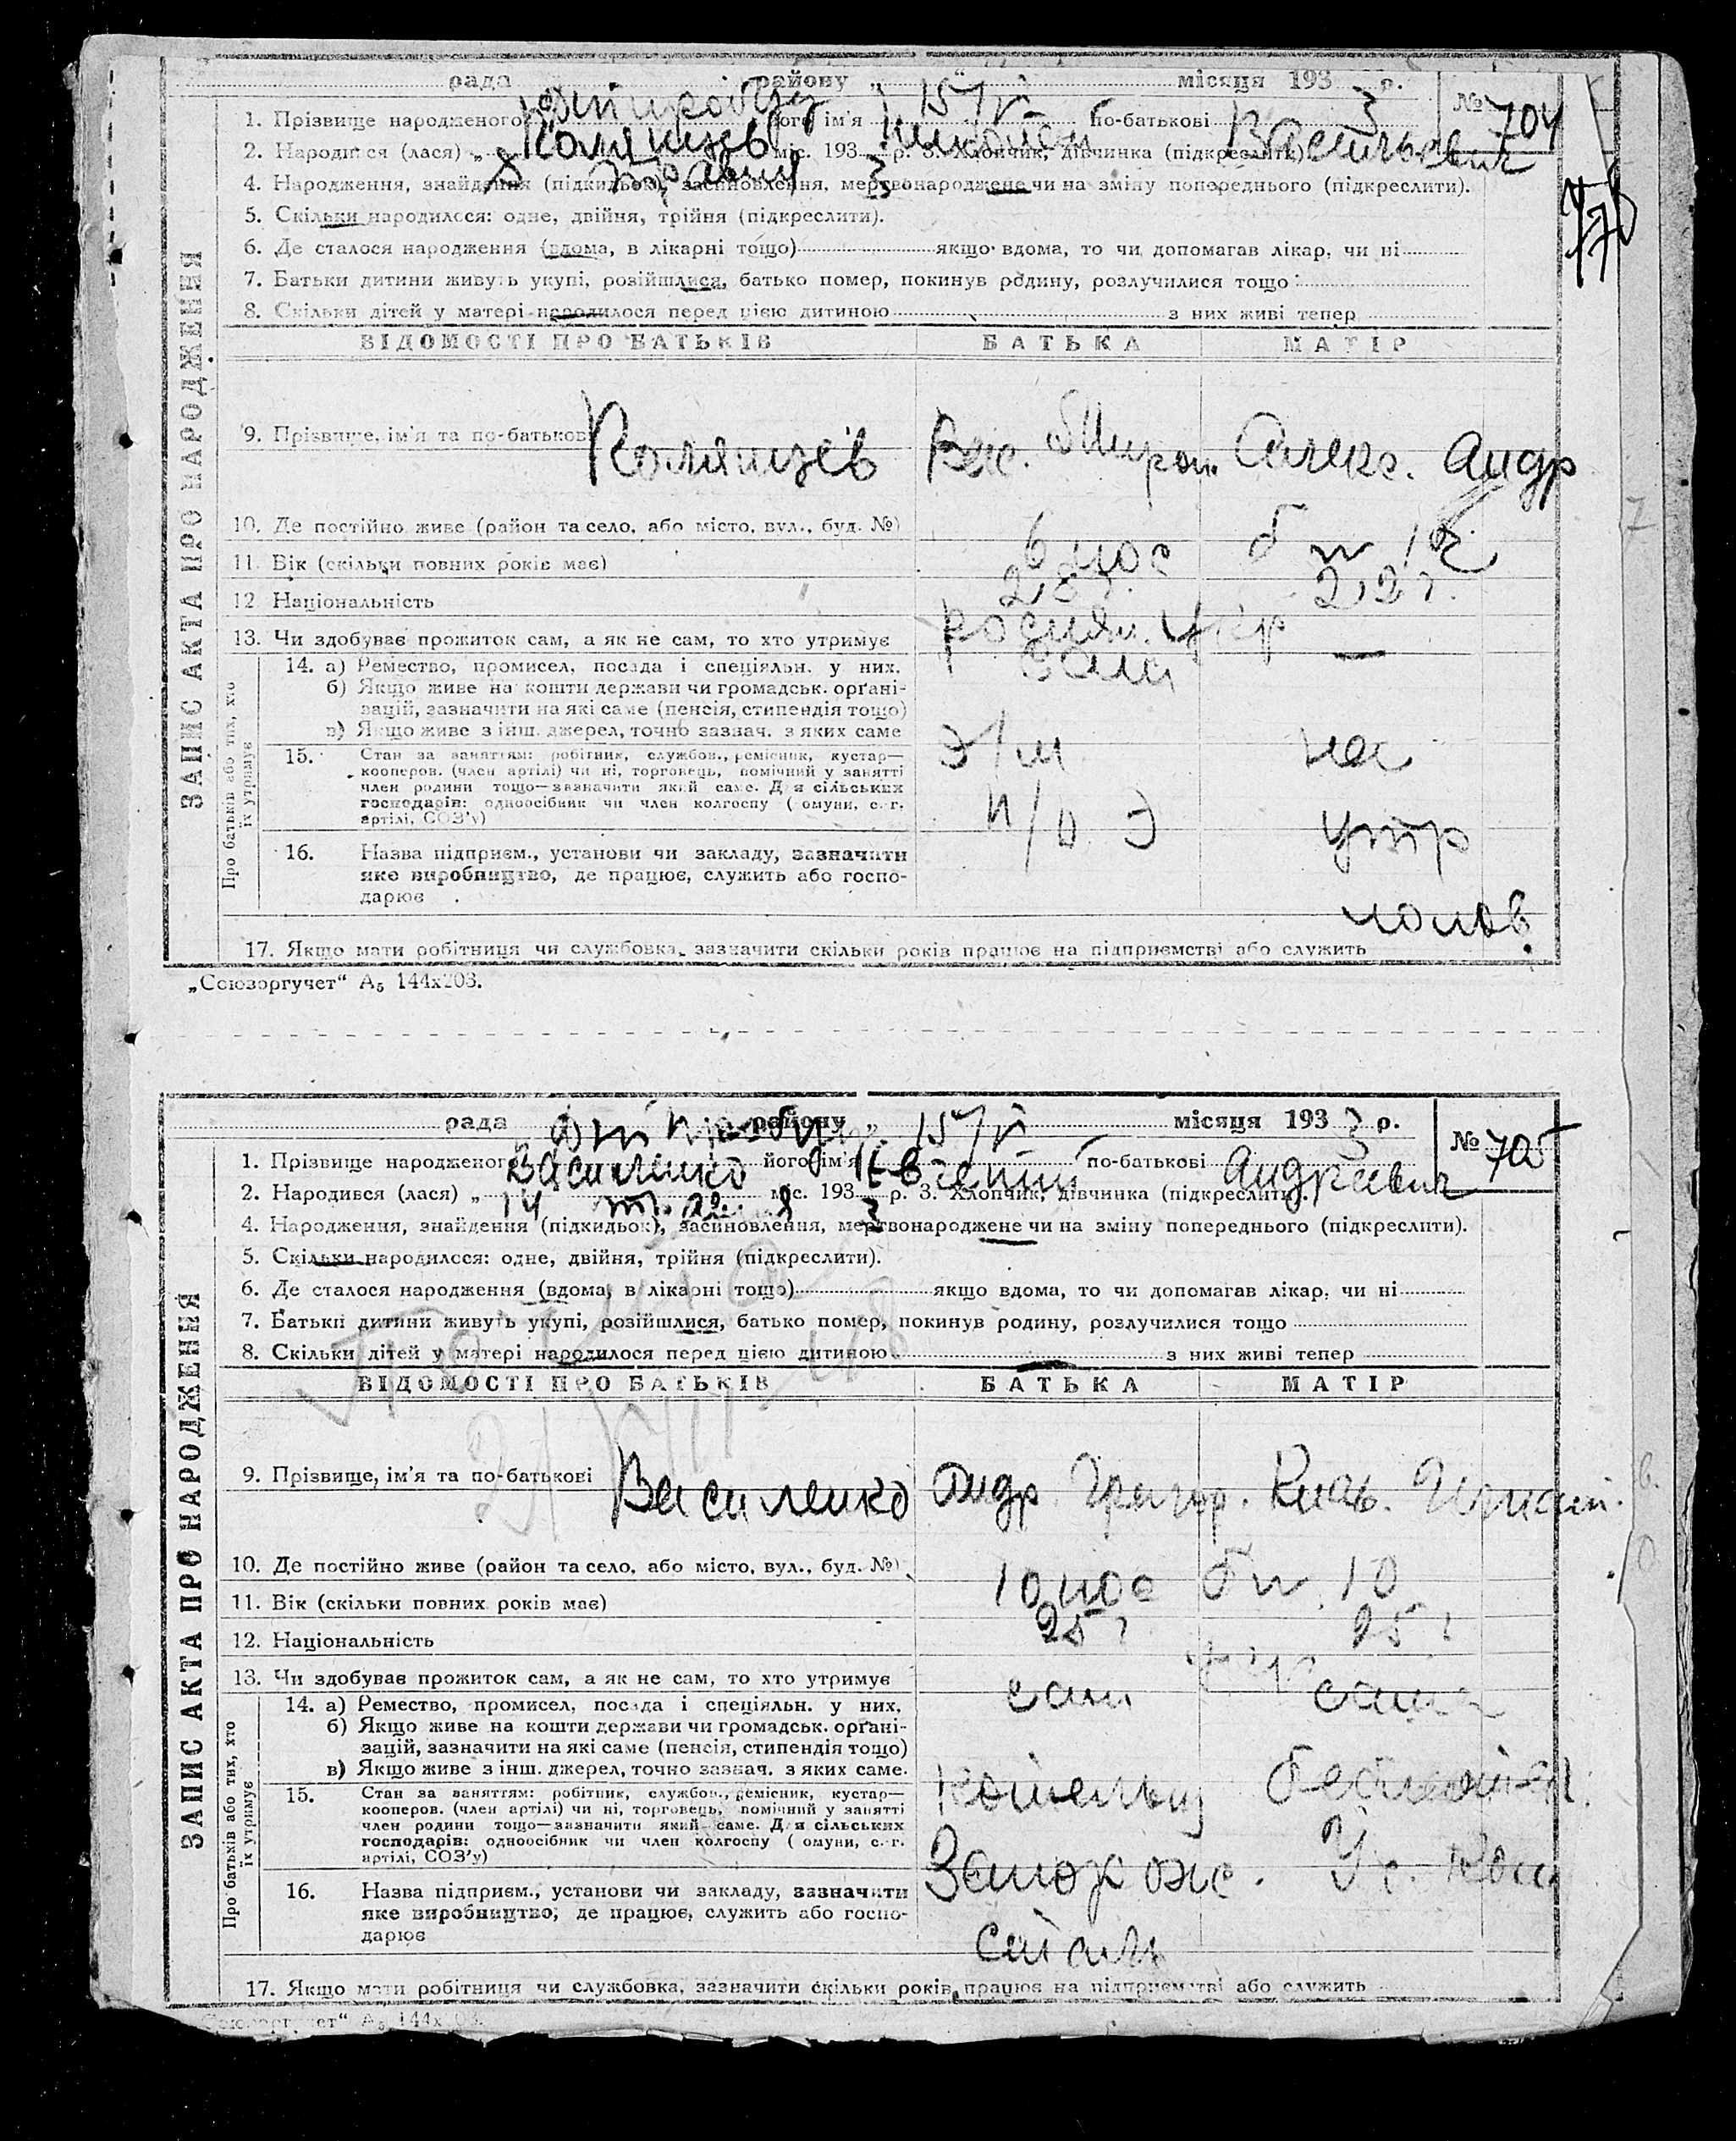 рада Дніпробуд району „ 15/VI місяця 193 3 р. № 704
1. Прізвище народженого Коляизев його ім'я по-батькові Васильевич
2. Народився (лася) „ 8 травня міс. 193 3 р. 3. Хлопчик, дівчинка (підкреслити).
4. Народження, знайдення (підкидьок), засиновлення, мертвонароджене чи на зміну попереднього (підкреслити).
5. Скільки народилося: одне, двійня, трійня (підкреслити).
6. Де сталося народження (вдома, в лікарні тощо) якщо вдома, то чи допомагав лікар, чи ні
7. Батьки дитини живуть укупі, розійшлися, батько помер, покинув родину, розлучилися тощо
8. Скільки дітей у матері народилося перед цією дитиною з них живі тепер
ЗАПИС АКТА ПРО НАРОДЖЕННЯ
ВІДОМОСТІ ПРО БАТЬКІВ БАТЬКА МАТІР
9. Прізвище, ім'я та по-батькові Вас. Мирон. Алекс. Андр
10. Де постійно живе (район та село, або місто, вул., буд. №) 6 пос
11. Вік (скільки повних років має) 22 г.
12 Національність росиян. укр
13. Чи здобуває прожиток сам, а як не сам, то хто утримує сам —
Про батьків або тих, хто їх утримує
14. а) Ремество, промисел, посада і спеціяльн. у них.
б) Якщо живе на кошти держави чи громадськ. орґані-
зацій, зазначити на які саме (пенсія, стипендія тощо)
в) Якщо живе з інш. джерел, точно зазнач. з яких саме
15. Стан за заняттям: робітник, службов., ремісник, кустар—
кооперов. (член артілі) чи ні, торговець, помічний у занятті
член родини тощо—зазначити який саме. Для сільських
господарів: одноосібник чи член колгоспу (комуни, с.-г.
артілі, СОЗ'у)
на
утр
чолов
16. Назва підприєм., установи чи закладу, зазначити
яке виробництво, де працює, служить або госпо-
дарює
17. Якщо мати робітниця чи службовка, зазначити скільки років працює на підприємстві або служить
„Союзоргучет“ А₅ 144х203.
рада Дніпробуд району „ 15/VI місяця 193 3 р. № 705
1. Прізвище народженого Василенко його ім'я Евгений по-батькові Андреевич
2. Народився (лася) „ 14 травня міс. 193 3 р. 3. Хлопчик, дівчинка (підкреслити).
4. Народження, знайдення (підкидьок), засиновлення, мертвонароджене чи на зміну попереднього (підкреслити).
5. Скільки народилося: одне, двійня, трійня (підкреслити).
6. Де сталося народження (вдома, в лікарні тощо) якщо вдома, то чи допомагав лікар, чи ні
7. Батьки дитини живуть укупі, розійшлися, батько помер, покинув родину, розлучилися тощо
8. Скільки дітей у матері народилося перед цією дитиною — з них живі тепер
ЗАПИС АКТА ПРО НАРОДЖЕННЯ
ВІДОМОСТІ ПРО БАТЬКІВ БАТЬКА МАТІР
9. Прізвище, ім'я та по-батькові Василенко Андр. Григор. Игнат.
10. Де постійно живе (район та село, або місто, вул., буд. №) 10 пос б н. 10
11. Вік (скільки повних років має) 25 г 25 г
12. Національність укр
13. Чи здобуває прожиток сам, а як не сам, то хто утримує сам сама
Про батьків або тих, хто їх утримує
14. а) Ремество, промисел, посада і спеціяльн. у них.
б) Якщо живе на кошти держави чи громадськ. орґані-
зацій, зазначити на які саме (пенсія, стипендія тощо)
в) Якщо живе з інш. джерел, точно зазнач. з яких саме.
15. Стан за заняттям: робітник, службов., ремісник, кустар—
кооперов. (член артілі) чи ні, торговець, помічний у занятті
член родини тощо—зазначити який саме. Для сільських
господарів: одноосібник чи член колгоспу (комуни, с.-г.
артілі, СОЗ'у)
Запорож.
сталь
16. Назва підприєм., установи чи закладу, зазначити
яке виробництво, де працює, служить або госпо-
дарює
17. Якщо мати робітниця чи службовка, зазначити скільки років працює на підприємстві або служить
„Союзоргучет“ А₅ 144х203.